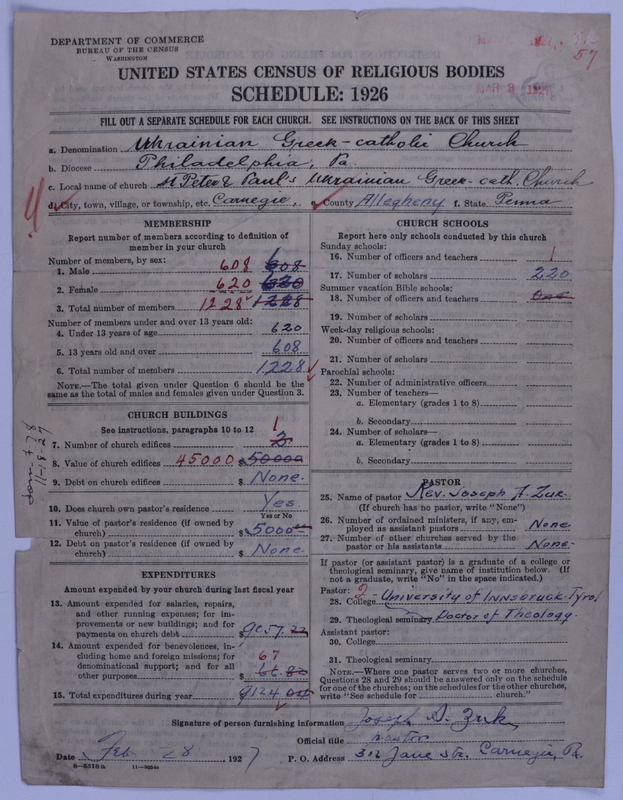 DEPARTMENT OF COMMERCE
BUREAU OF THE CENSUS
WASHINGTON
57
MAR 8 1927
UNITED STATES CENSUS OF RELIGIOUS BODIES
SCHEDULE: 1926
FILL OUT A SEPARATE SCHEDULE FOR EACH CHURCH. SEE INSTRUCTIONS ON THE BACK OF THIS SHEET
a. Denomination Ukrainian Greek-catholic Church
b. Diocese Philadelphia, Pa.
c. Local name of church St Peter & Paul's Ukrainian Greek-cath. Church
d. City, town, village, or township, etc. Carnegie, e. County Allegheny f. State Penna
MEMBERSHIP
Report number of members according to definition of
member in your church
Number of members, by sex:
1. Male 608 608
2. Female 620 620
3. Total number of members 1228 1228
Number of members under and over 13 years old:
4. Under 13 years of age 620
5. 13 years old and over 608
6. Total number of members 1228
NOTE.—The total given under Question 6 should be the
same as the total of males and females given under Question 3.
CHURCH BUILDINGS
See instructions, paragraphs 10 to 12
7. Number of church edifices 1 2
8. Value of church edifices 45000 $50000
9. Debt on church edifices $ None.
10. Does church own pastor's residence Yes
Yes or No
11. Value of pastor's residence (if owned by
church) $5000
12. Debt on pastor's residence (if owned by
church) $ None
EXPENDITURES
Amount expended by your church during last fiscal year
13. Amount expended for salaries, repairs,
and other running expenses; for im-
provements or new buildings; and for
payments on church debt $9057.22
14. Amount expended for benevolences, in-
cluding home and foreign missions; for
denominational support; and for all
other purposes 67 $66.82
15. Total expenditures during year $9124.04
CHURCH SCHOOLS
Report here only schools conducted by this church
Sunday schools:
16. Number of officers and teachers 1
17. Number of scholars 220
Summer vacation Bible schools:
18. Number of officers and teachers one
19. Number of scholars
Week-day religious schools:
20. Number of officers and teachers
21. Number of scholars
Parochial schools:
22. Number of administrative officers
23. Number of teachers—
a. Elementary (grades 1 to 8)
b. Secondary
24. Number of scholars—
a. Elementary (grades 1 to 8)
b. Secondary
PASTOR
25. Name of pastor Rev. Joseph A. Zuk.
(If church has no pastor, write "None")
26. Number of ordained ministers, if any, em-
ployed as assistant pastors None
27. Number of other churches served by the
pastor or his assistants None.
If pastor (or assistant pastor) is a graduate of a college or
theological seminary, give name of institution below. (If
not a graduate, write "No" in the space indicated.)
Pastor:
28. College 2 - University of Innsbruck-Tyrol
29. Theological seminary Doctor of Theology.
Assistant pastor:
30. College
31. Theological seminary
NOTE.—Where one pastor serves two or more churches,
Questions 28 and 29 should be answered only on the schedule
for one of the churches; on the schedules for the other churches,
write "See schedule for church."
Signature of person furnishing information Joseph A. Zuk
Official title pastor
Date Feb 28 1927 P. O. Address 312 Jane str. Carnegie, Pa.
8-5518a 11-9254a
11-18-27